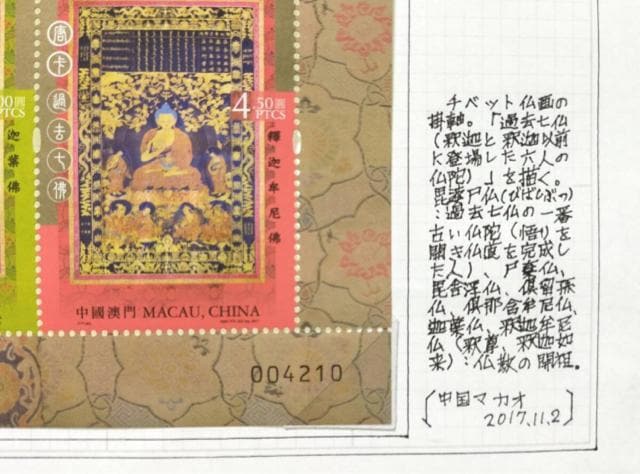 唐卡
過去七佛
00圓
PTCS
迦葉佛
4.50圓
PTCS
釋迦牟尼佛
中國澳門 MACAU, CHINA
004210
チベット仏画の
掛軸。「過去七仏
(釈迦と釈迦以前
に登場した六人の
仏陀)」を描く。
毘婆尸仏(びばしぶつ)
:過去七仏の一番
古い仏陀(悟りを
開き仏道を完成し
た人)、尸棄仏、
毘舎浮仏、倶留孫
仏、倶那含牟尼仏、
迦葉仏、釈迦牟尼
仏(釈尊、釈迦如
来):仏教の開祖。
〔中国マカオ
2017.11.2〕